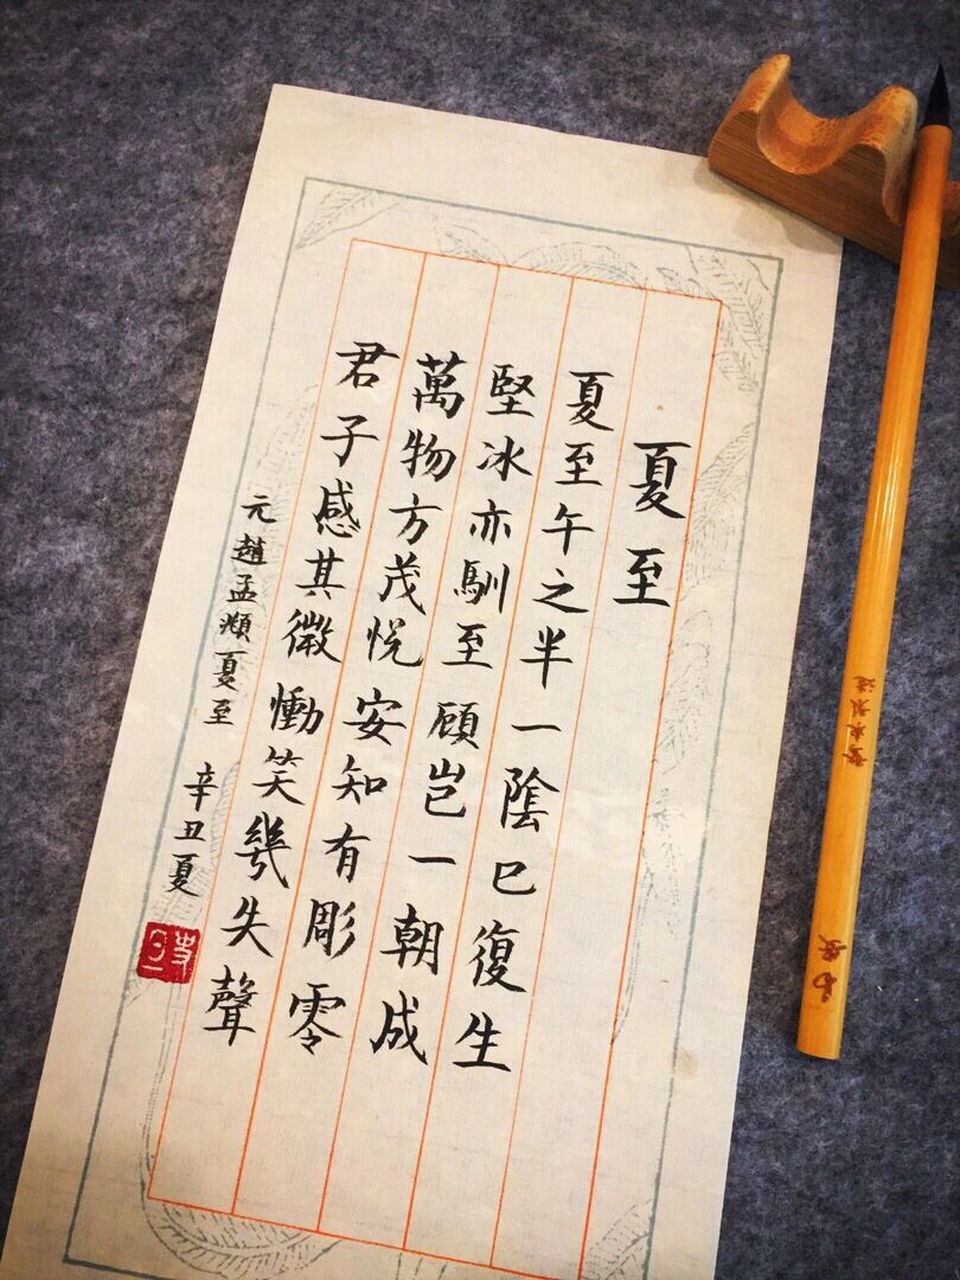 夏至
夏至午之半一陰已復生
堅冰亦馴至顧豈一朝成
萬物方茂悅安知有彫零
君子感其微慟笑幾失聲
元趙孟頫夏至 辛丑夏